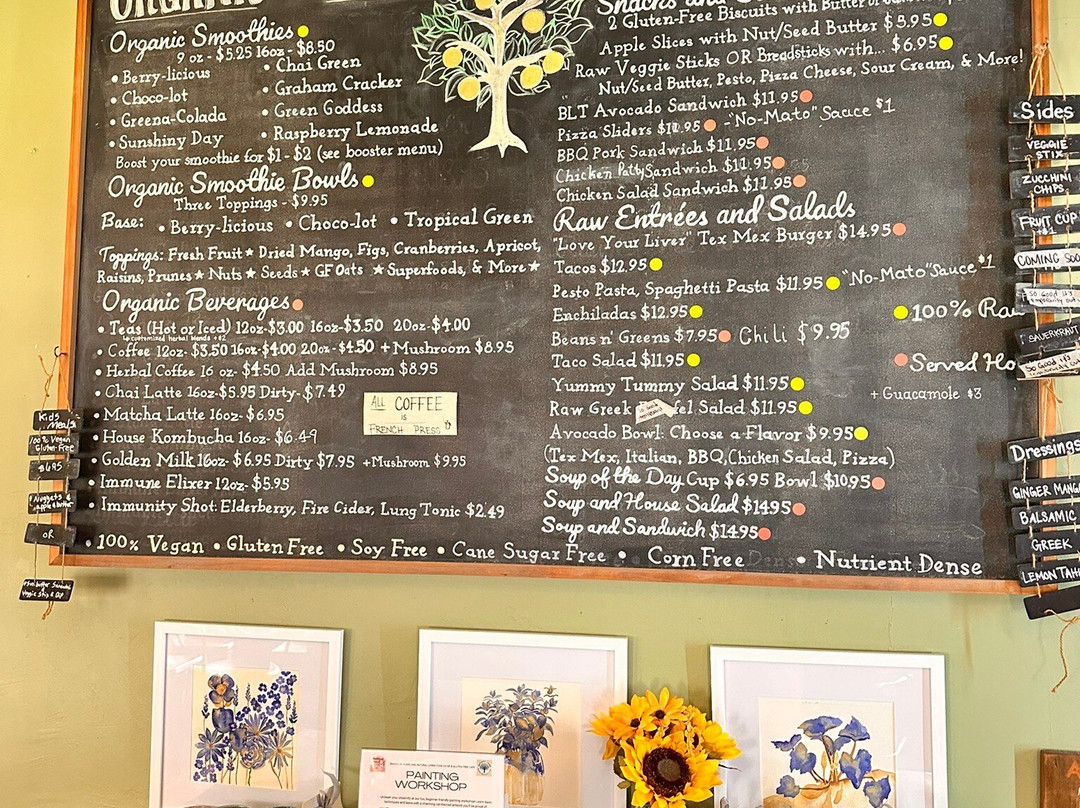 Organic Smoothies
9 oz - $5.25 16oz - $8.50
• Berry-licious
• Choco-lot
• Greena-Colada
• Sunshiny Day
• Chai Green
• Graham Cracker
• Green Goddess
• Raspberry Lemonade
Boost your smoothie for $1 - $2 (see booster menu)
Organic Smoothie Bowls
Three Toppings - $9.95
Base: • Berry-licious • Choco-lot • Tropical Green
Toppings: Fresh Fruit ★ Dried Mango, Figs, Cranberries, Apricot,
Raisins, Prunes ★ Nuts ★ Seeds ★ GF Oats ★ Superfoods, & More ★
Organic Beverages
• Teas (Hot or Iced) 12oz-$3.00 16oz-$3.50 20oz-$4.00
customized herbal blends +$2
• Coffee 12oz- $3.50 16oz-$4.00 20oz-$4.50 + Mushroom $8.95
• Herbal Coffee 16 oz- $4.50 Add Mushroom $8.95
• Chai Latte 16oz-$5.95 Dirty-$7.49
• Matcha Latte 16oz- $6.95
• House Kombucha 16oz- $6.49
• Golden Milk 16oz- $6.95 Dirty $7.95 +Mushroom $9.95
• Immune Elixer 12oz- $5.95
• Immunity Shot: Elderberry, Fire Cider, Lung Tonic $2.49
ALL COFFEE
IS
FRENCH PRESS
Snacks and
2 Gluten-Free Biscuits with Butter or
Apple Slices with Nut/Seed Butter $5.95
Raw Veggie Sticks OR Breadsticks with... $6.95
Nut/Seed Butter, Pesto, Pizza Cheese, Sour Cream, & More!
BLT Avocado Sandwich $11.95
Pizza Sliders $11.95 -"No-Mato" Sauce $1
BBQ Pork Sandwich $11.95
Chicken Patty Sandwich $11.95
Chicken Salad Sandwich $11.95
Raw Entrées and Salads
"Love Your Liver" Tex Mex Burger $14.95
Tacos $12.95
Pesto Pasta, Spaghetti Pasta $11.95 "No-Mato" Sauce $1
Enchiladas $12.95
Beans n' Greens $7.95 Chili $9.95
Taco Salad $11.95
Yummy Tummy Salad $11.95
Raw Greek Salad $11.95
Avocado Bowl: Choose a Flavor $9.95
(Tex Mex, Italian, BBQ, Chicken Salad, Pizza)
Soup of the Day Cup $6.95 Bowl $10.95
Soup and House Salad $14.95
Soup and Sandwich $14.95
100% Ra
Served Ho
+ Guacamole $3
• 100% Vegan • Gluten Free • Soy Free • Cane Sugar Free • Corn Free • Nutrient Dense
Kids
Meals
100% Vegan
Gluten-Free
$6.95
OR
Sides
VEGGIE
STIX
ZUCCHINI
CHIPS
FRUIT CUP
COMING SOO
SAUERKRAUT
Dressings
GINGER MANG
BALSAMIC
GREEK
LEMON TAH
PAINTING
WORKSHOP